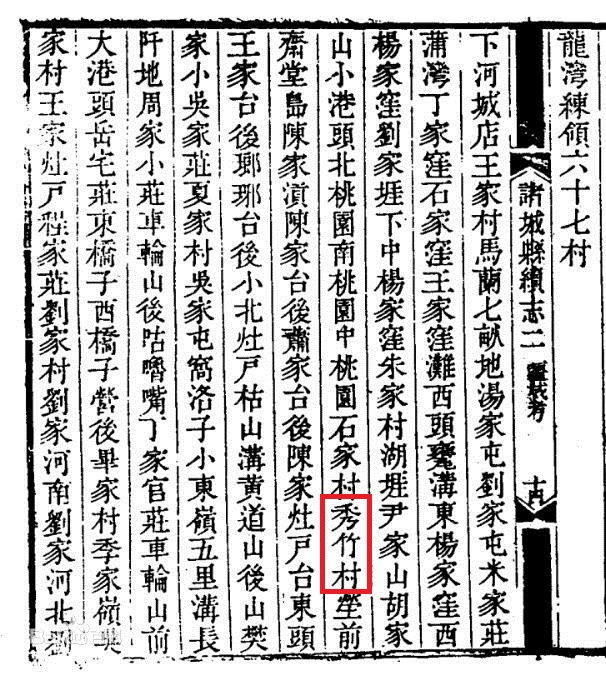 龍灣練領六十七村
諸城縣續志二 疆域考 十四
下河城店王家村馬蘭七畝地湯家屯劉家屯米家莊
蒲灣丁家窪石家窪王家窪灘西頭甕溝東楊家窪西
楊家窪劉家堐下中楊家窪朱家村湖堐尹家山胡家
山小港頭北桃園南桃園中桃園石家村秀竹村塋前
齋堂島陳家滇陳家台後蕭家台後陳家灶戸台東頭
王家台後瑯琊台後小北灶戸枯山溝黃道山後山樊
家小吳家莊夏家村吳家屯窩洛子小東嶺五里溝長
阡地周家小莊車輪山後咕嚕嘴丁家官莊車輪山前
大港頭岳宅莊東橋子西橋子營後畢家村季家嶺吳
家村王家灶戸程家莊劉家村劉家河南劉家河北劉